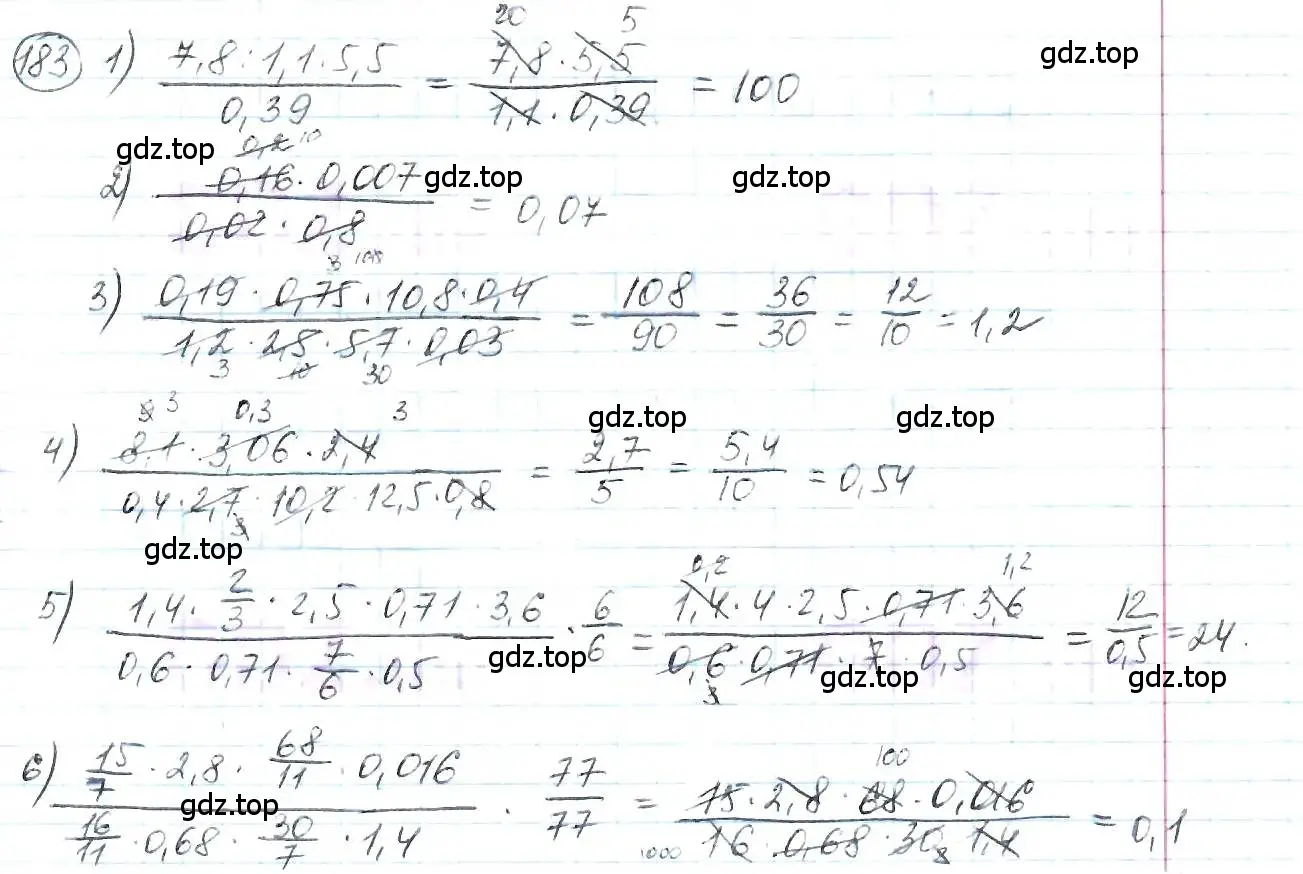 183 1) (7,8 : 1,1 · 5,5)/(0,39) = (7,8 · 5,5)/(1,1 · 0,39) = 100
20 5
gdz.top
gdz.top
0,2 10
2) (0,16 · 0,007)/(0,02 · 0,8) = 0,07
gdz.top
gdz.top
3 108
3) (0,19 · 0,75 · 10,8 · 0,4)/(1,2 · 2,5 · 5,7 · 0,03) = 108/90 = 36/30 = 12/10 = 1,2
3 10 30
3 0,3 3
gdz.top
gdz.top
4) (8,1 · 3,06 · 2,4)/(0,4 · 2,7 · 10,2 · 12,5 · 0,8) = 2,7/5 = 5,4/10 = 0,54
gdz.top
0,2 1,2
5) (1,4 · 2/3 · 2,5 · 0,71 · 3,6)/(0,6 · 0,71 · 7/6 · 0,5) · 6/6 = (1,4 · 4 · 2,5 · 0,71 · 3,6)/(0,6 · 0,71 · 7 · 0,5) = 12/0,5 = 24.
gdz.top
gdz.top
gdz.top
100
6) (15/7 · 2,8 · 68/11 · 0,016)/(16/11 · 0,68 · 30/7 · 1,4) · 77/77 = (15 · 2,8 · 68 · 0,016)/(16 · 0,68 · 30 · 1,4) = 0,1
gdz.top
1000